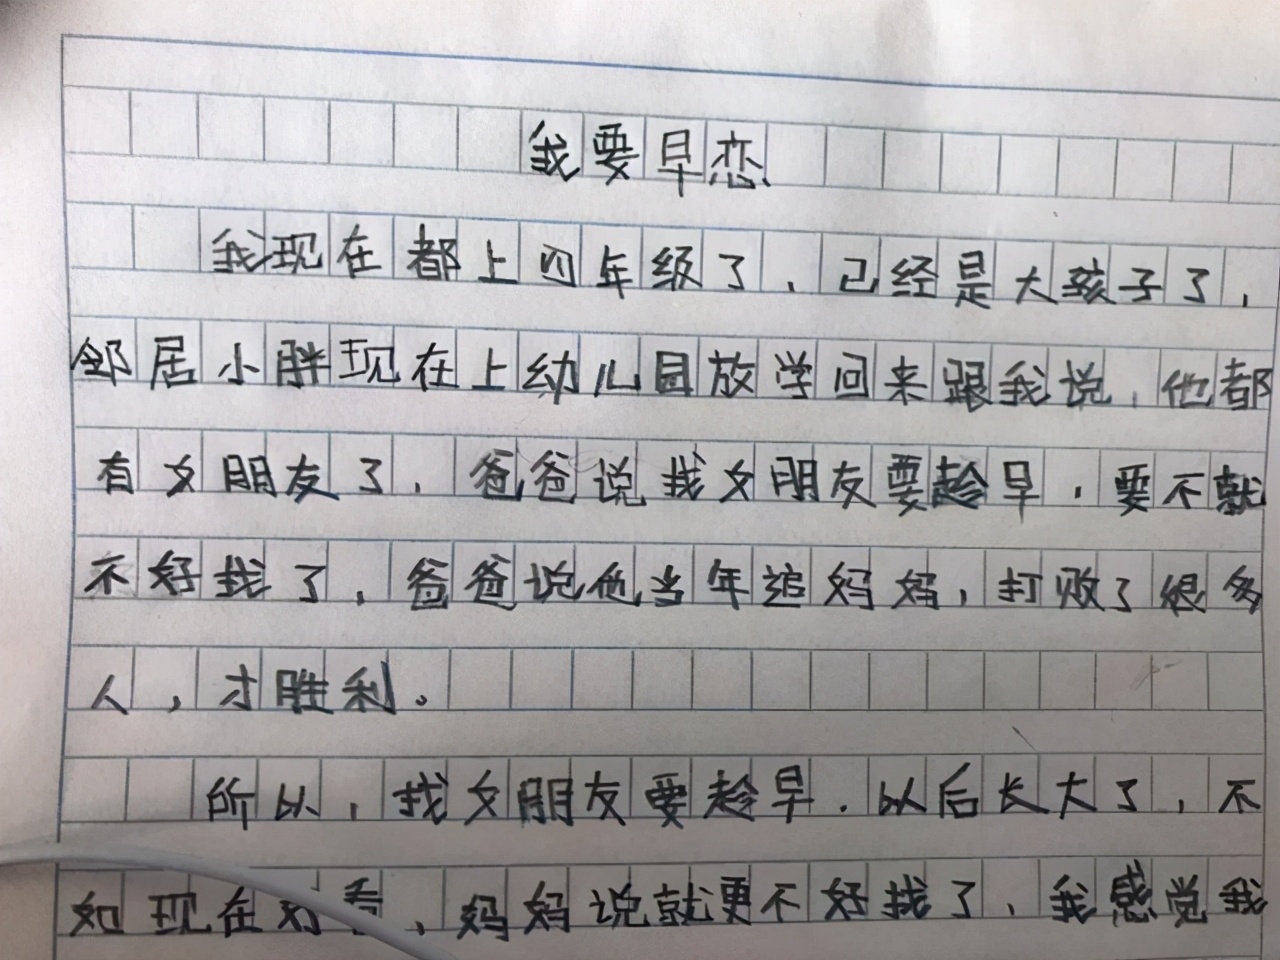 我要早恋
我现在都上四年级了，已经是大孩子了，
邻居小胖现在上幼儿园放学回来跟我说，他都
有女朋友了，爸爸说找女朋友要趁早，要不就
不好找了，爸爸说他当年追妈妈，打败了很多
人，才胜利。
所以，找女朋友要趁早．以后长大了，不
如现在好看，妈妈说就更不好找了，我感觉我